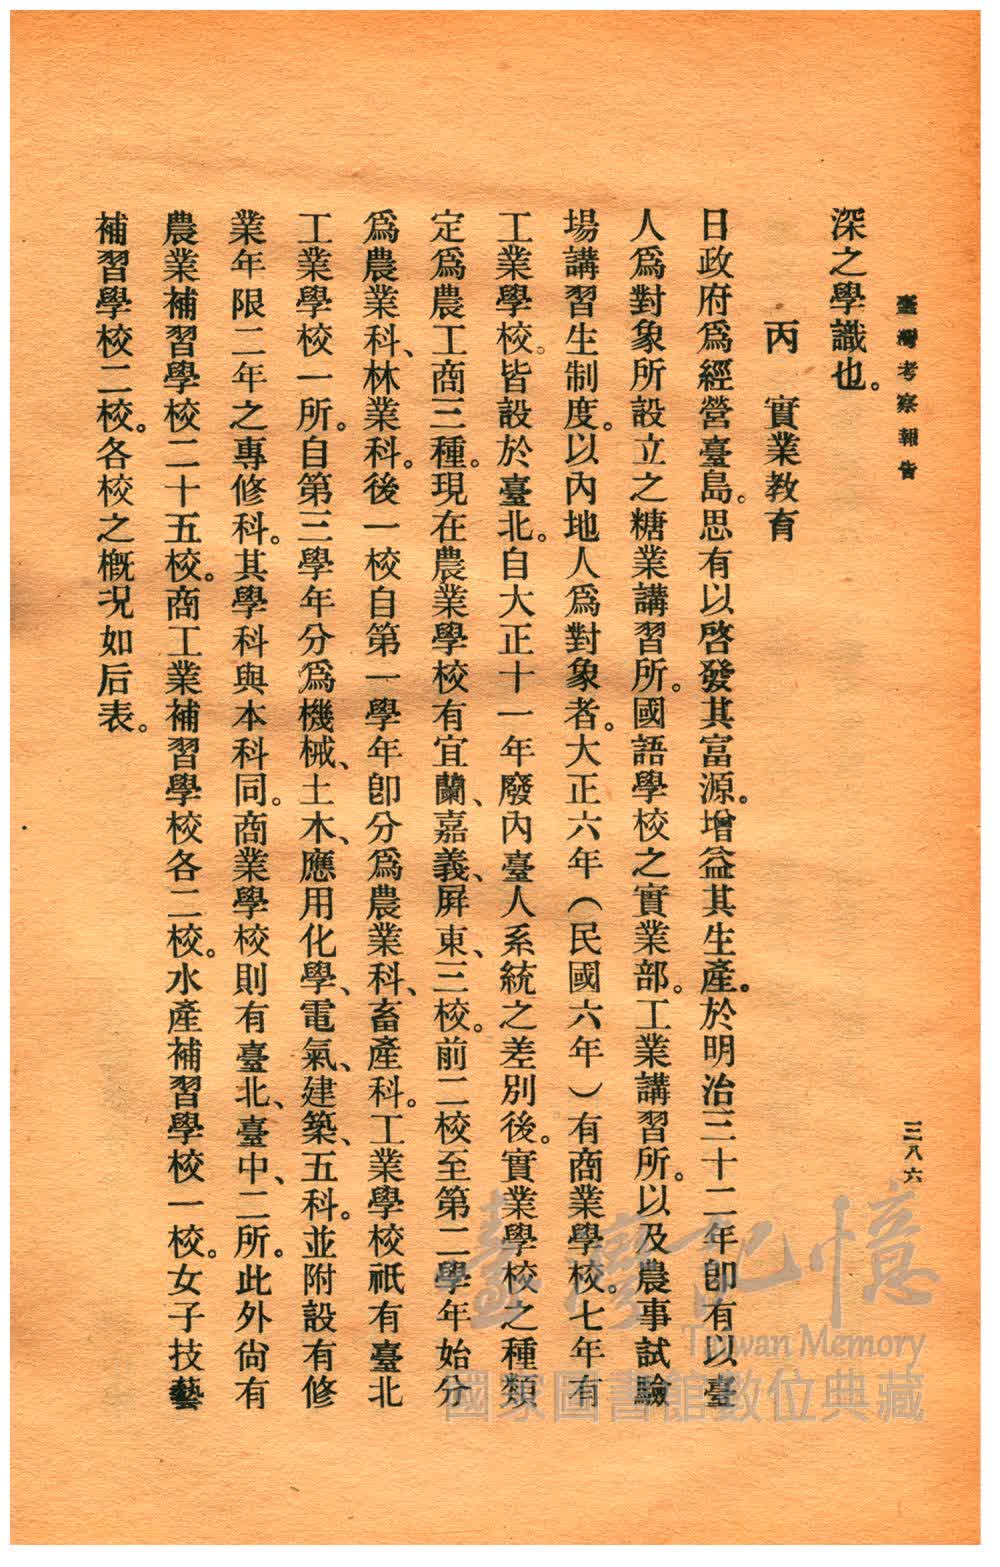 臺灣考察報告
三八六
深之學識也。
丙　實業敎育
日政府爲經營臺島。思有以啓發其富源。增益其生產。於明治三十二年卽有以臺
人爲對象所設立之糖業講習所。國語學校之實業部。工業講習所。以及農事試驗
場講習生制度。以內地人爲對象者。大正六年（民國六年）有商業學校。七年有
工業學校。皆設於臺北。自大正十一年廢內臺人系統之差別後。實業學校之種類
定爲農工商三種。現在農業學校有宜蘭、嘉義、屏東、三校。前二校至第二學年始分
爲農業科、林業科。後一校自第一學年卽分爲農業科、畜產科。工業學校祇有臺北
工業學校一所。自第三學年分爲機械、土木、應用化學、電氣、建築、五科。並附設有修
業年限二年之專修科。其學科與本科同。商業學校則有臺北、臺中、二所。此外尙有
農業補習學校二十五校。商工業補習學校各二校。水產補習學校一校。女子技藝
補習學校二校。各校之槪況如后表。
臺灣記憶
Taiwan Memory
國家圖書館數位典藏